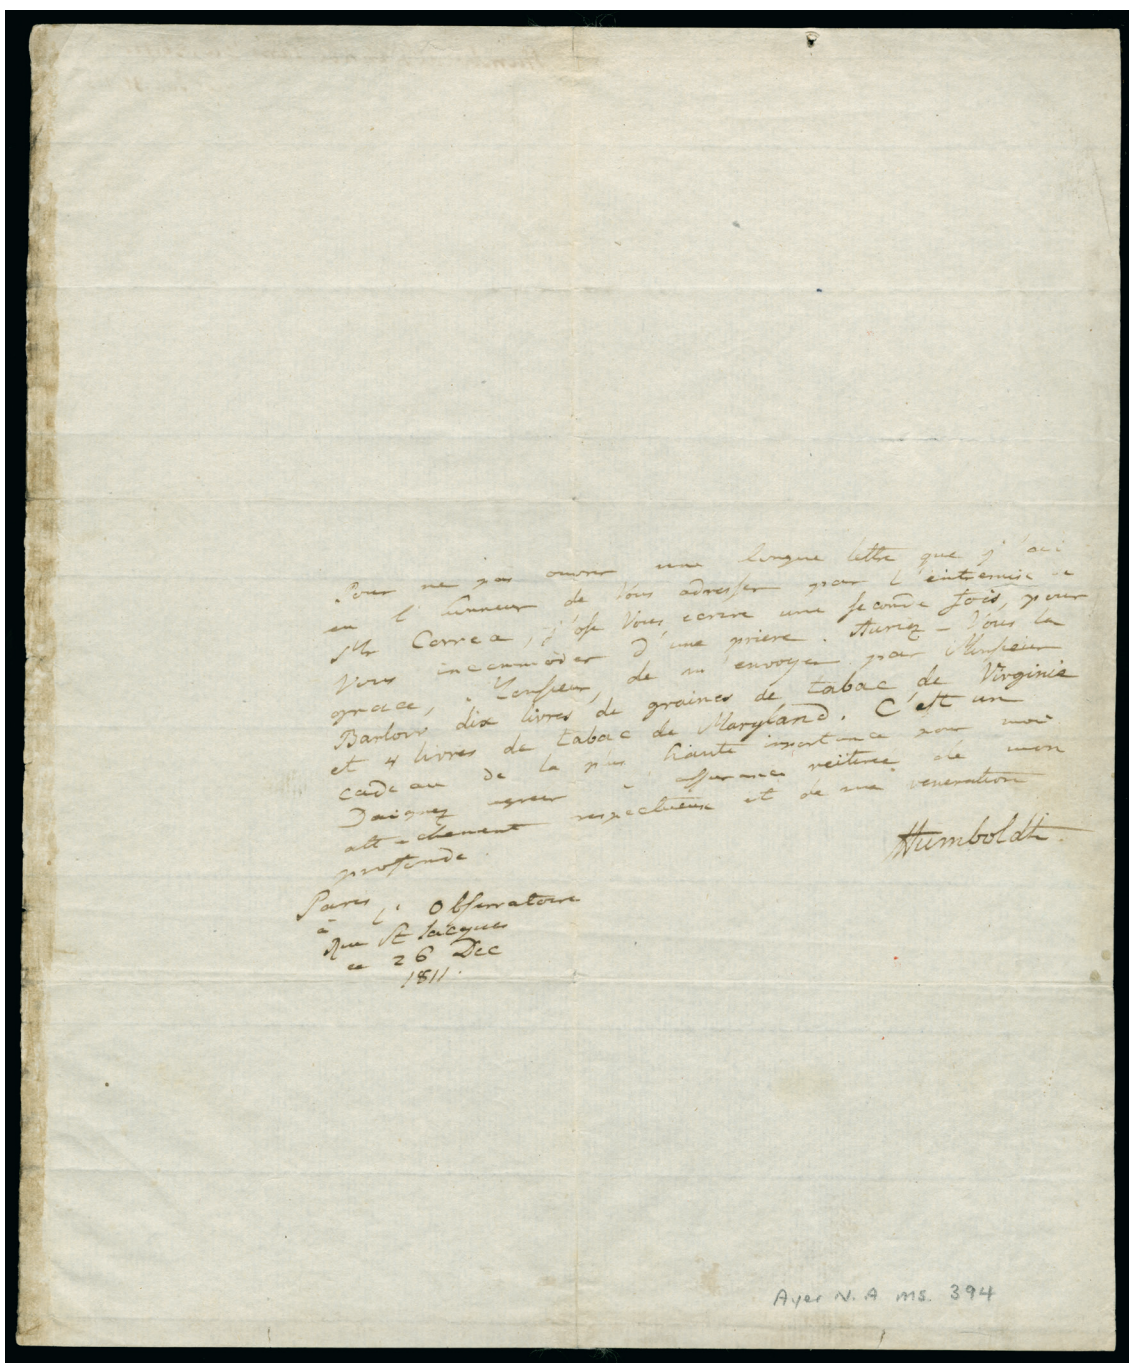 Pour ne pas ouvrir une longue lettre que j'ai
eu l'honneur de Vous adresser par l'entremise de
Mr Correa, j'ose Vous ecrire une seconde fois, pour
Vous incommoder d'une priere. Auriez-Vous la
grace, Monsieur, de m'envoyer par Monsieur
Barlow dix livres de graines de tabac de Virginie
et 4 livres de tabac de Maryland. C'est un
cadeau de la plus haute importance pour moi
Daignez agreer l'assurance reiterée de mon
attachement respectueux et de ma veneration
profonde.
Humboldt.
Paris
à l'Observatoire
Rue St Jacques
ce 26 Dec
1811.
Ayer N. A ms. 394